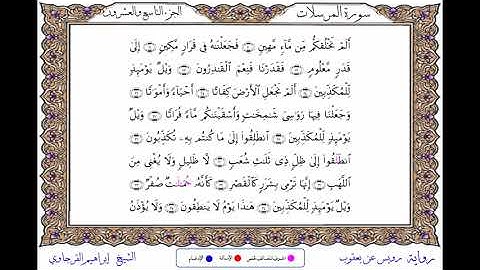 سورة المرسلات الجزء التاسع والعشرون
أَلَمْ نَخْلُقكُّم مِّن مَّآءٍ مَّهِينٍ ۝ فَجَعَلْنَٰهُ فِى قَرَارٍ مَّكِينٍ ۝ إِلَىٰ
قَدَرٍ مَّعْلُومٍ ۝ فَقَدَرْنَا فَنِعْمَ ٱلْقَٰدِرُونَ ۝ وَيْلٌ يَوْمَئِذٍ
لِّلْمُكَذِّبِينَ ۝ أَلَمْ نَجْعَلِ ٱلْأَرْضَ كِفَاتًا ۝ أَحْيَآءً وَأَمْوَٰتًا ۝
وَجَعَلْنَا فِيهَا رَوَٰسِىَ شَٰمِخَٰتٍ وَأَسْقَيْنَٰكُم مَّآءً فُرَاتًا ۝ وَيْلٌ
يَوْمَئِذٍ لِّلْمُكَذِّبِينَ ۝ ٱنطَلِقُوٓا۟ إِلَىٰ مَا كُنتُم بِهِۦ تُكَذِّبُونَ ۝
ٱنطَلَقُوٓا۟ إِلَىٰ ظِلٍّ ذِى ثَلَٰثِ شُعَبٍ ۝ لَّا ظَلِيلٍ وَلَا يُغْنِى مِنَ
ٱللَّهَبِ ۝ إِنَّهَا تَرْمِى بِشَرَرٍ كَٱلْقَصْرِ ۝ كَأَنَّهُۥ جُمَٰلَٰتٌ صُفْرٌ ۝
وَيْلٌ يَوْمَئِذٍ لِّلْمُكَذِّبِينَ ۝ هَٰذَا يَوْمُ لَا يَنطِقُونَ ۝ وَلَا يُؤْذَنُ
رواية رويس عن يعقوب الإمالة الإدغام الشيخ إبراهيم الفرجاوي